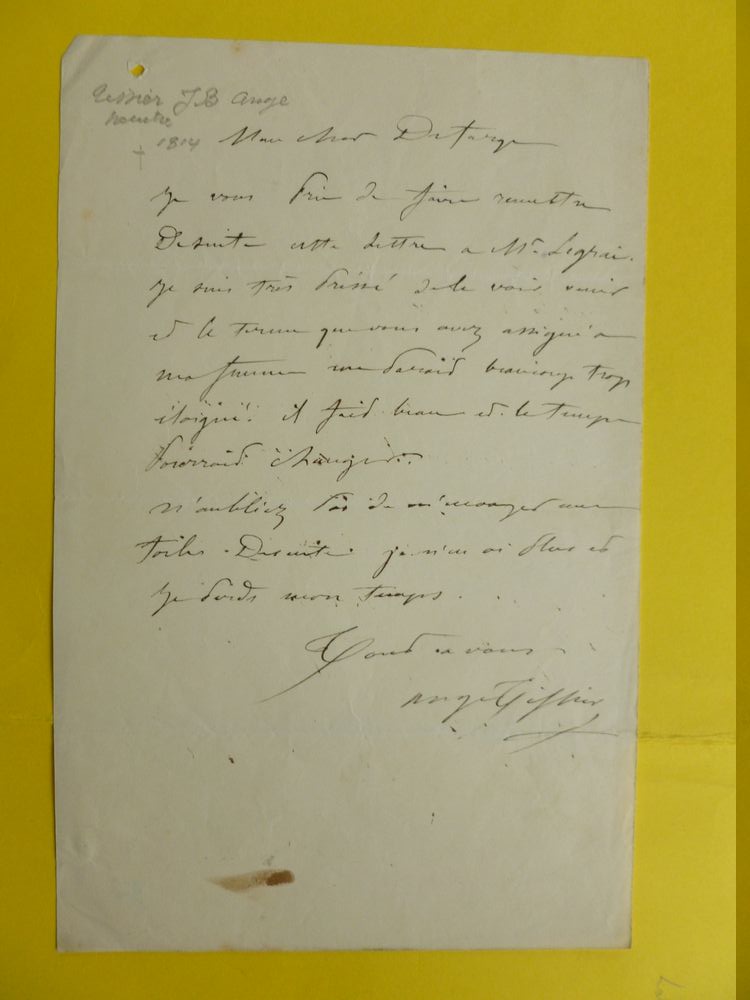 Tissier JB Ange
peintre
+ 1814
Mon cher Detarge
Je vous prie de faire remettre
Desuite cette lettre a Mr. Legrai.
Je suis très préssé de le voir venir
et le terme que vous avez assigné a
ma femme me parait beaucoup trop
éloigné. il fait beau et le temps
pourrait changer.
N'oubliez pas de m'envoyer une
toile Desuite. je n'en ai plus et
Je perds mon temps.
Tout a vous
Ange Tissier